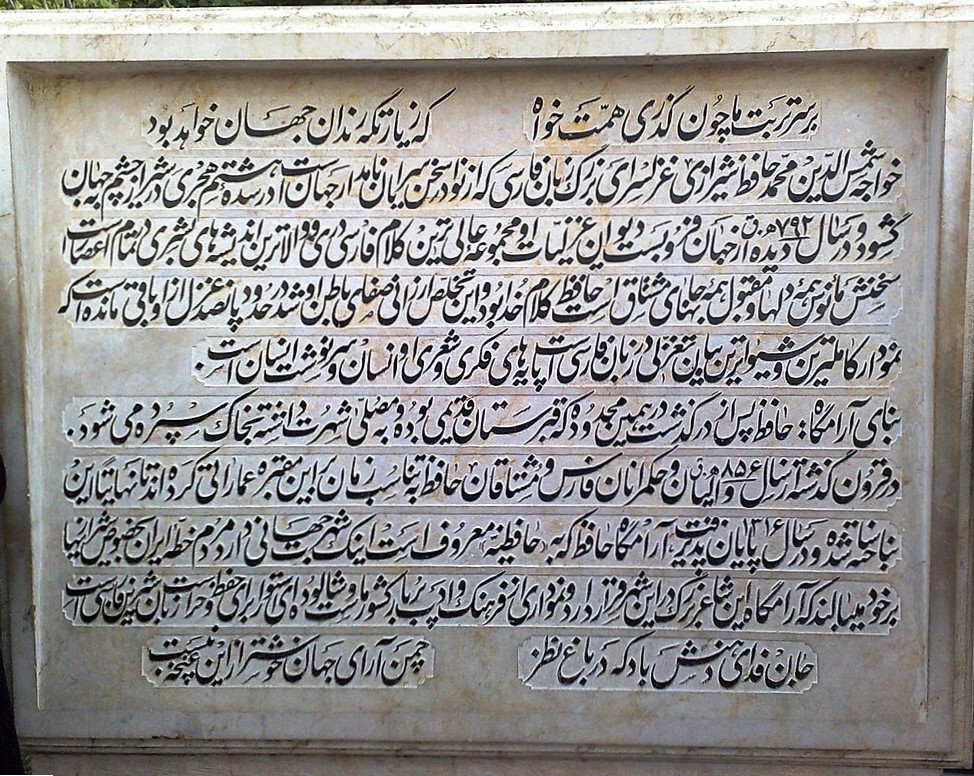 بر سر تربت ما چون گذری همت خواه که زیارتگه رندان جهان خواهد بود
خواجه شمس الدین محمد حافظ شیرازی غزلسرای بزرگ زبان فارسی که از نوادر سخن سرایان نامدار جهان است در سده هشتم هجری در شیراز چشم به جهان
گشود و در سال ۷۹۲ ه.ق دیده از جهان فرو بست دیوان غزلیات او مجموعه عالی ترین کلام فارسی دری و والاترین اندیشه های بشری در تمام اعصار است
سخنش مانوس همه دلها و مقبول همه جانهای مشتاق است حافظ کلام خدا بود و این تخلص ارزانی صفای باطن او شد در حدود پانصد غزل از او باقی مانده است که
نمودار کاملترین و شیواترین بیان تغزلی در زبان فارسی است پایه های فکری و شعری او انسان و سرنوشت انسان است.
بنای آرامگاه: حافظ پس از درگذشت در همین محدوده که قبرستان قدیمی بوده و به مصلی شهرت داشته بخاک سپرده می شود.
در قرون گذشته از سال ۸۵۶ والیان و حکمرانان فارس و مشتاقان حافظ به تناسب زمان بر این مقبره عماراتی کرده اند تا نهایتا این
بنا ساخته شده و در سال ۱۳۱۶ پایان پذیرفت، آرامگاه حافظ که به حافظیه معروف است اینک شهرت جهانی دارد مردم خطه ایران بخصوص شیرازیها
بر خود میبالند که آرامگاه این شاعر بزرگ در این شهر قرار دارد و نموداری از فرهنگ و ادب پربار کشور ما و شالوده ای استوار برای حفظ و حراست زبان شیرین فارسی است
جان فدای دهنش باد که در باغ نظر چمن آرای جهان خوشتر از این غنچه نبست